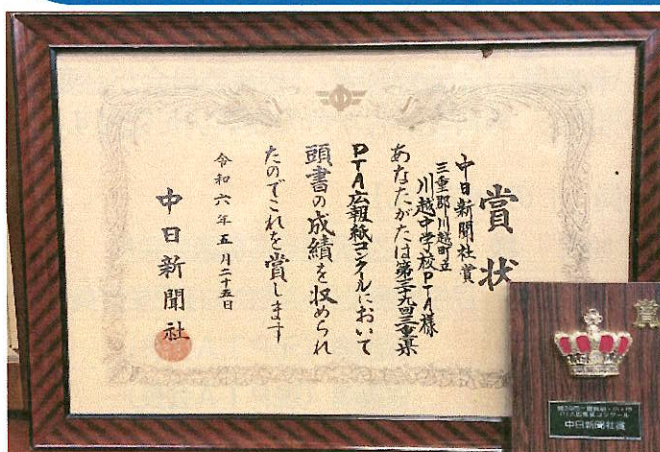 賞状
中日新聞社賞
三重郡川越町立
川越中学校PTA様
あなたがたは第三十九回三重県
PTA広報紙コンクールにおいて
頭書の成績を収められ
たのでこれを賞します
令和六年五月二十五日
中日新聞社
中日新聞社賞